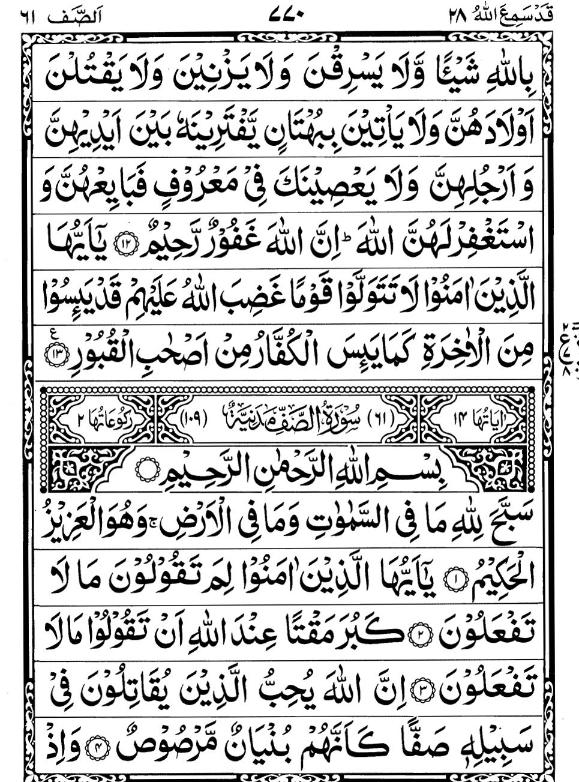 قَدْ سَمِعَ اللهُ ٢٨ ٧٧٠ اَلصَّفّ ٦١
بِاللهِ شَيْئًا وَّلَا يَسْرِقْنَ وَلَا يَزْنِيْنَ وَلَا يَقْتُلْنَ
اَوْلَادَهُنَّ وَلَا يَاْتِيْنَ بِبُهْتَانٍ يَّفْتَرِيْنَهٗ بَيْنَ اَيْدِيْهِنَّ
وَاَرْجُلِهِنَّ وَلَا يَعْصِيْنَكَ فِيْ مَعْرُوْفٍ فَبَايِعْهُنَّ وَ
اسْتَغْفِرْ لَهُنَّ اللهَ ؕ اِنَّ اللهَ غَفُوْرٌ رَّحِيْمٌ ۝١٢ يٰۤاَيُّهَا
الَّذِيْنَ اٰمَنُوْا لَا تَتَوَلَّوْا قَوْمًا غَضِبَ اللهُ عَلَيْهِمْ قَدْ يَئِسُوْا
مِنَ الْاٰخِرَةِ كَمَا يَئِسَ الْكُفَّارُ مِنْ اَصْحٰبِ الْقُبُوْرِ ۝١٣ ع
اٰيَاتُهَا ١٤ (٦١) سُوْرَةُ الصَّفِّ مَدَنِيَّةٌ (١٠٩) رُكُوْعَاتُهَا ٢
بِسْمِ اللهِ الرَّحْمٰنِ الرَّحِيْمِ
سَبَّحَ لِلهِ مَا فِي السَّمٰوٰتِ وَمَا فِي الْاَرْضِ ۚ وَهُوَ الْعَزِيْزُ
الْحَكِيْمُ ۝١ يٰۤاَيُّهَا الَّذِيْنَ اٰمَنُوْا لِمَ تَقُوْلُوْنَ مَا لَا
تَفْعَلُوْنَ ۝٢ كَبُرَ مَقْتًا عِنْدَ اللهِ اَنْ تَقُوْلُوْا مَا لَا
تَفْعَلُوْنَ ۝٣ اِنَّ اللهَ يُحِبُّ الَّذِيْنَ يُقَاتِلُوْنَ فِيْ
سَبِيْلِهٖ صَفًّا كَاَنَّهُمْ بُنْيَانٌ مَّرْصُوْصٌ ۝٤ وَاِذْ